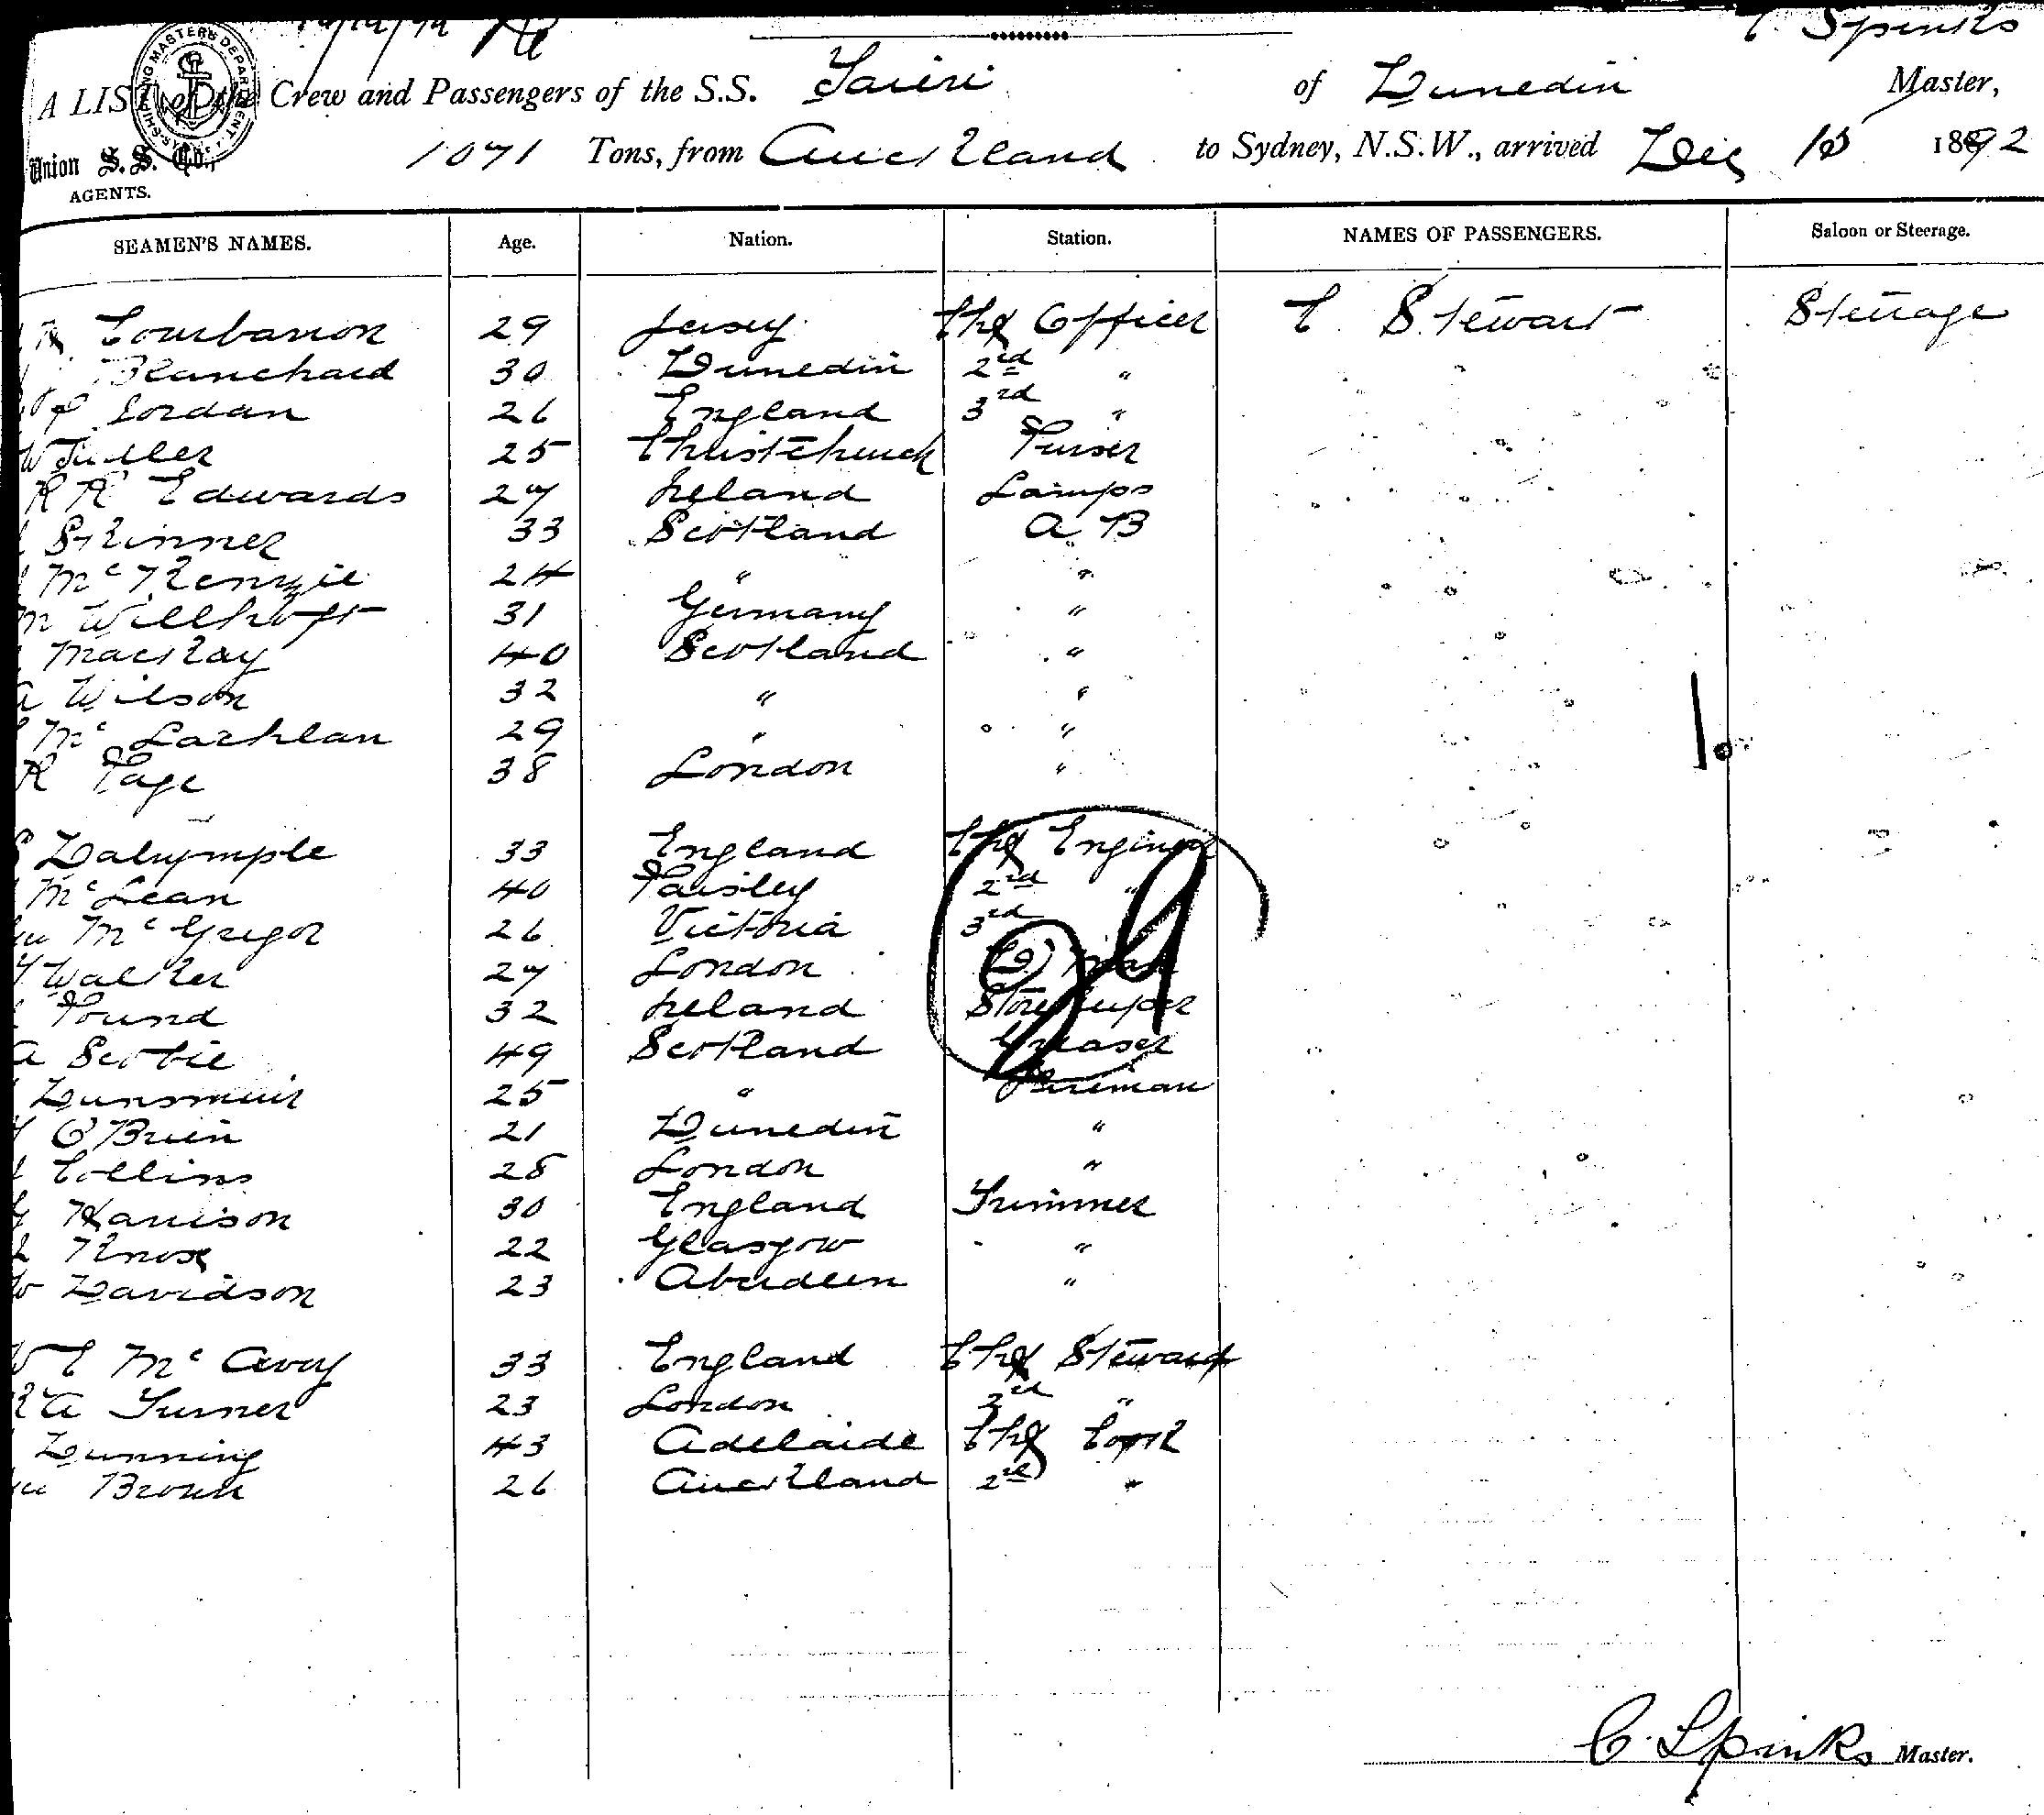 C. Spinks
A LIST of the Crew and Passengers of the S.S. Taieri of Dunedin Master,
Union S. S. Co., 1071 Tons, from Auckland to Sydney, N.S.W., arrived Dec 1892
AGENTS.
SEAMEN'S NAMES. Age. Nation. Station. NAMES OF PASSENGERS. Saloon or Steerage.
Courbarron 29 Jersey Chf Officer C. Stewart Steerage
Blanchard 30 Dunedin 2nd "
Jordan 26 England 3rd "
W Fuller 25 Christchurch Purser
R R Edwards 27 Ireland Lamps
Skinner 33 Scotland A B
McKenzie 24 " "
Willhoft 31 Germany "
MacKay 40 Scotland "
A Wilson 32 " "
McLachlan 29 " "
R Page 38 London "
Dalrymple 33 England Chf Engineer
McLean 40 Paisley 2nd "
McGregor 26 Victoria 3rd
Walker 27 London
Pound 32 Ireland Storekeeper
A Scobie 49 Scotland Greaser
Dunsmuir 25 " Fireman
O'Brien 21 Dunedin "
Collins 28 London "
Harrison 30 England Trimmer
Knox 22 Glasgow "
Davidson 23 Aberdeen "
W C McAvoy 33 England Chf Steward
A Turner 23 London 2nd "
Dunning 43 Adelaide Chf Cook
Brown 26 Auckland 2nd "
C. Spinks Master.